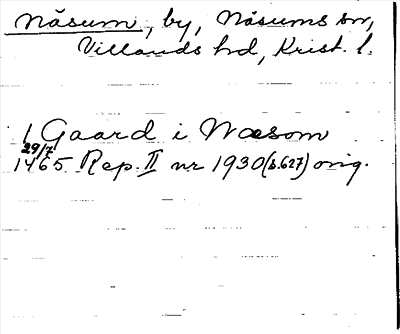 Näsum, by, Näsums sn,
Villands hd, Krist. l.
1 Gaard i Næsom
29/7
1465 Rep. II nr 1930 (s.627) orig.